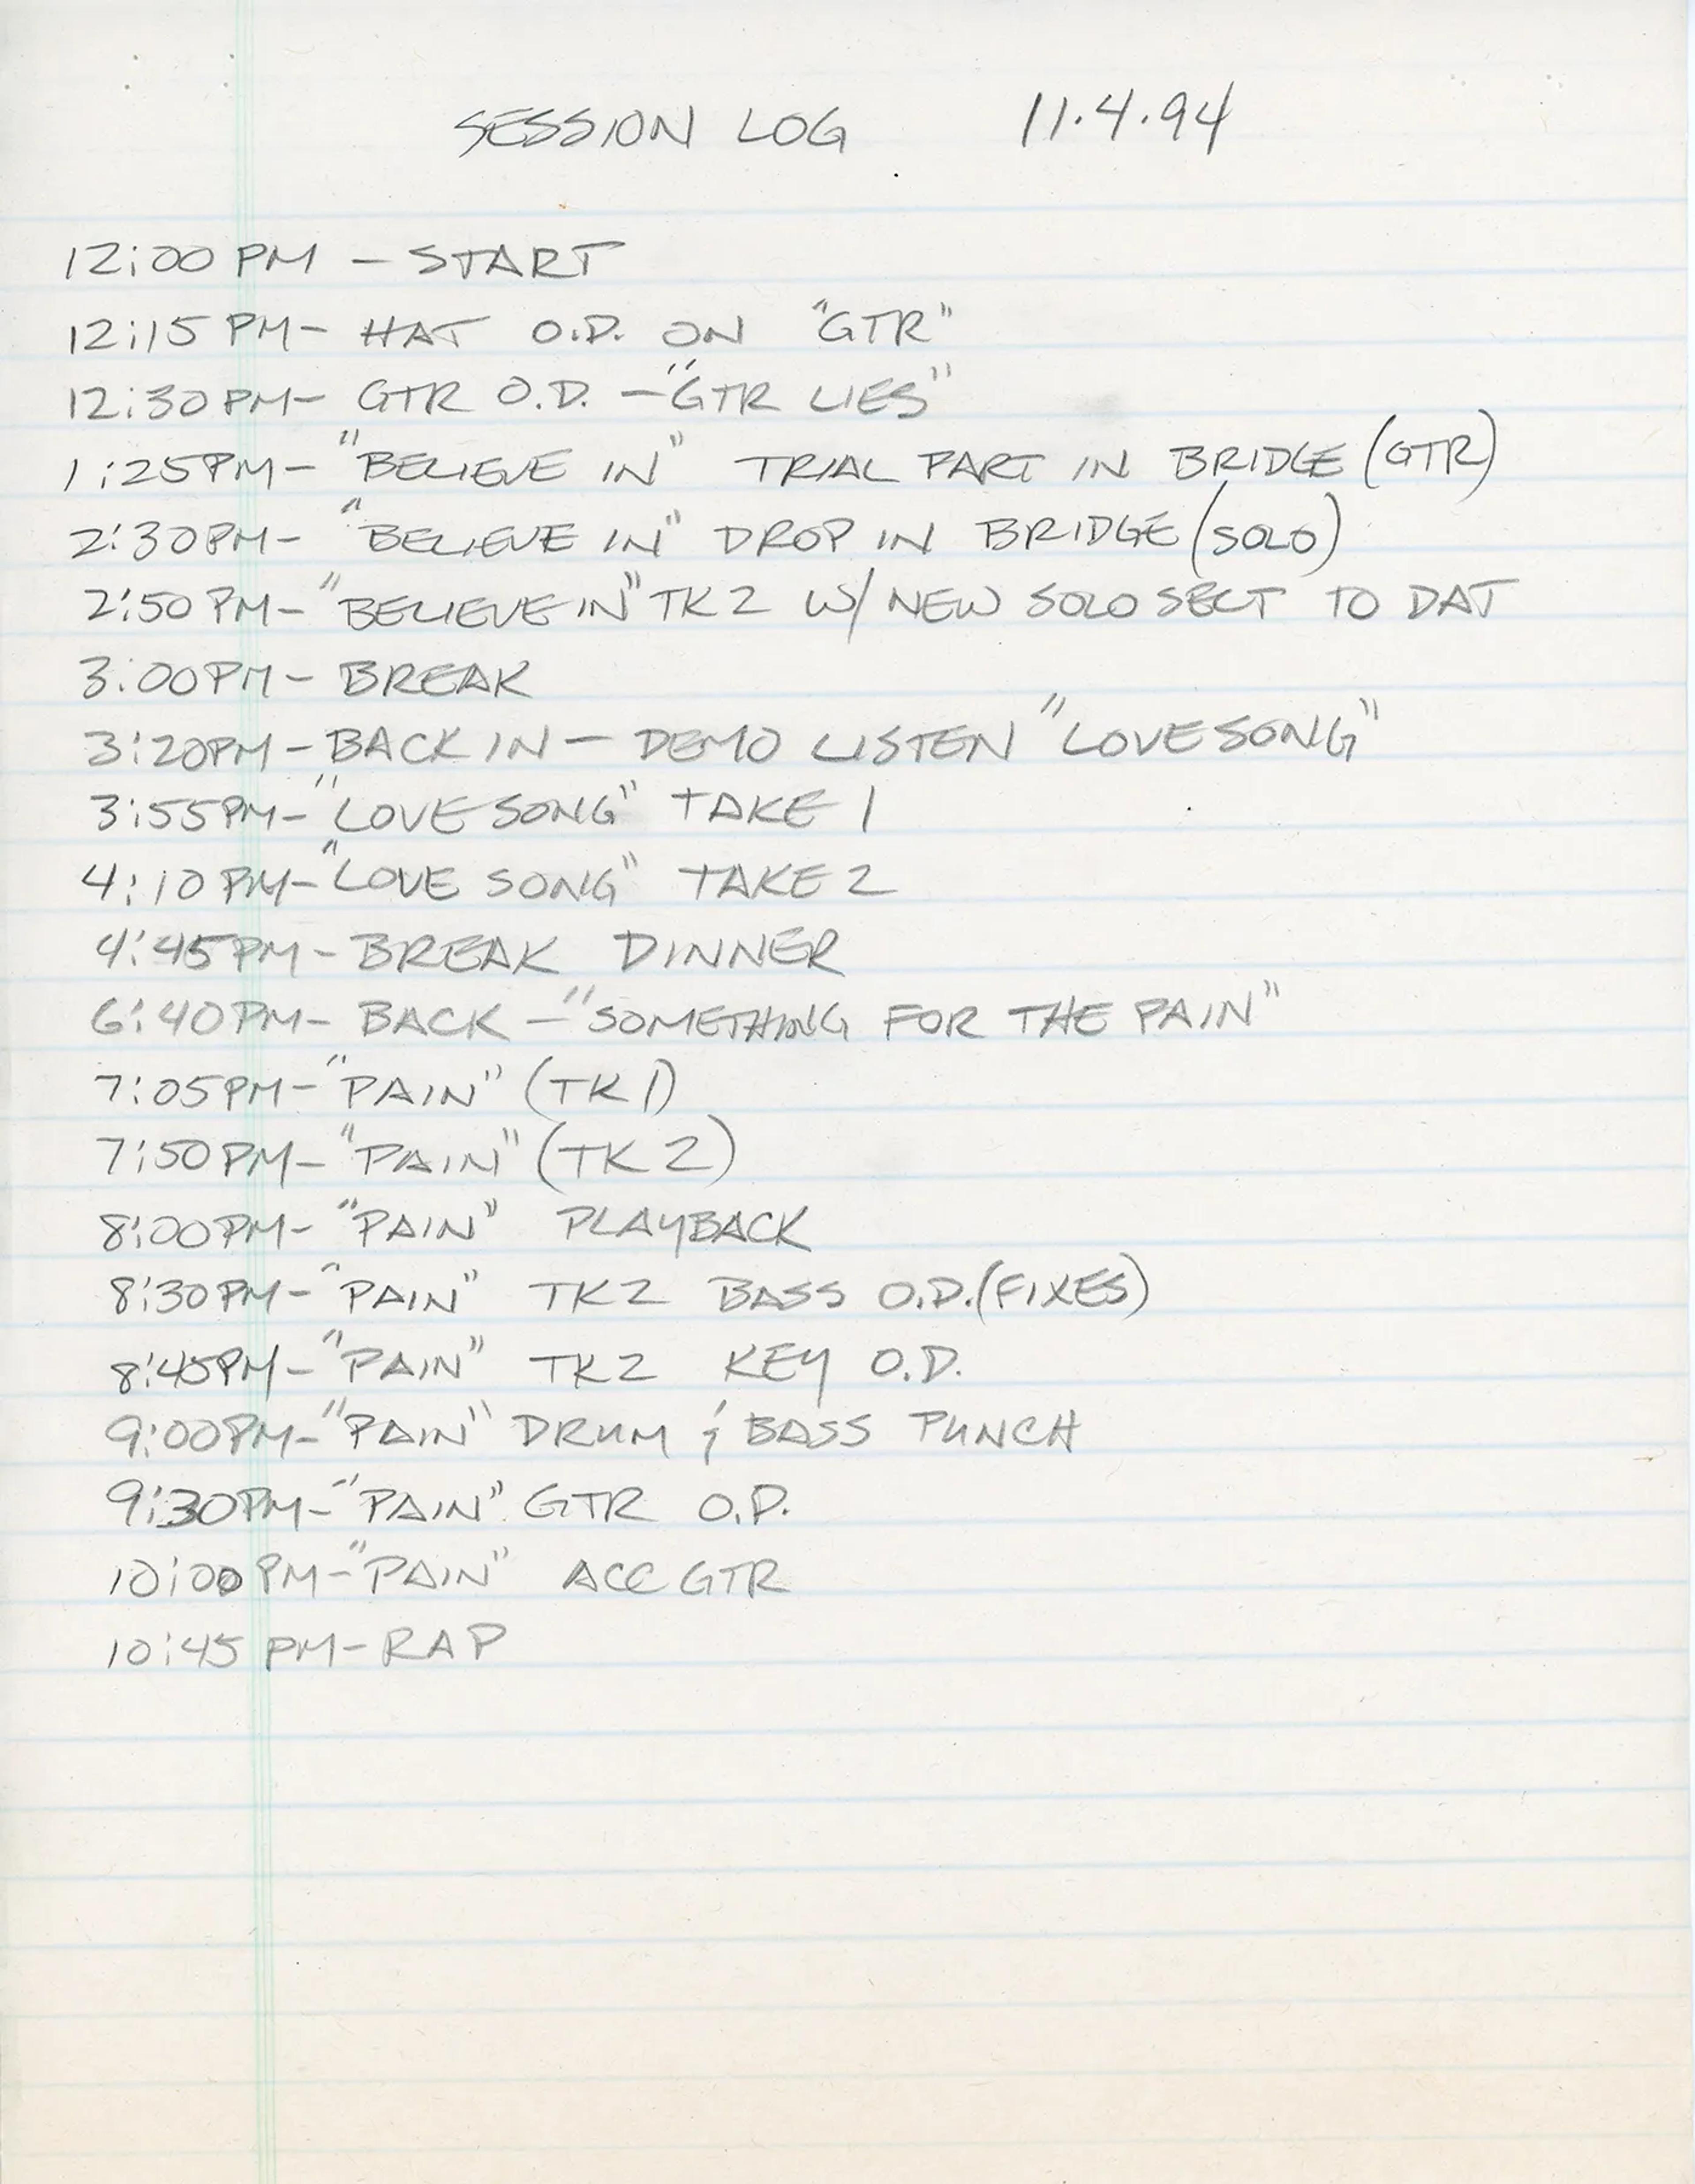 SESSION LOG 11.4.94
12:00 PM - START
12:15 PM- HAT O.D. ON "GTR"
12:30 PM- GTR O.D. - "GTR LIES"
1:25PM- "BELIEVE IN" TRIAL PART IN BRIDGE (GTR)
2:30PM- "BELIEVE IN" DROP IN BRIDGE (SOLO)
2:50 PM- "BELIEVE IN" TK 2 W/ NEW SOLO SECT TO DAT
3:00PM- BREAK
3:20PM- BACK IN - DEMO LISTEN "LOVE SONG"
3:55PM- "LOVE SONG" TAKE 1
4:10 PM- "LOVE SONG" TAKE 2
4:45PM- BREAK DINNER
6:40PM- BACK - "SOMETHING FOR THE PAIN"
7:05PM- "PAIN" (TK 1)
7:50PM- "PAIN" (TK 2)
8:00PM- "PAIN" PLAYBACK
8:30PM- "PAIN" TK2 BASS O.D. (FIXES)
8:45PM- "PAIN" TK2 KEY O.D.
9:00PM- "PAIN" DRUM & BASS PUNCH
9:30PM- "PAIN" GTR O.D.
10:00 PM- "PAIN" ACC GTR
10:45 PM- RAP